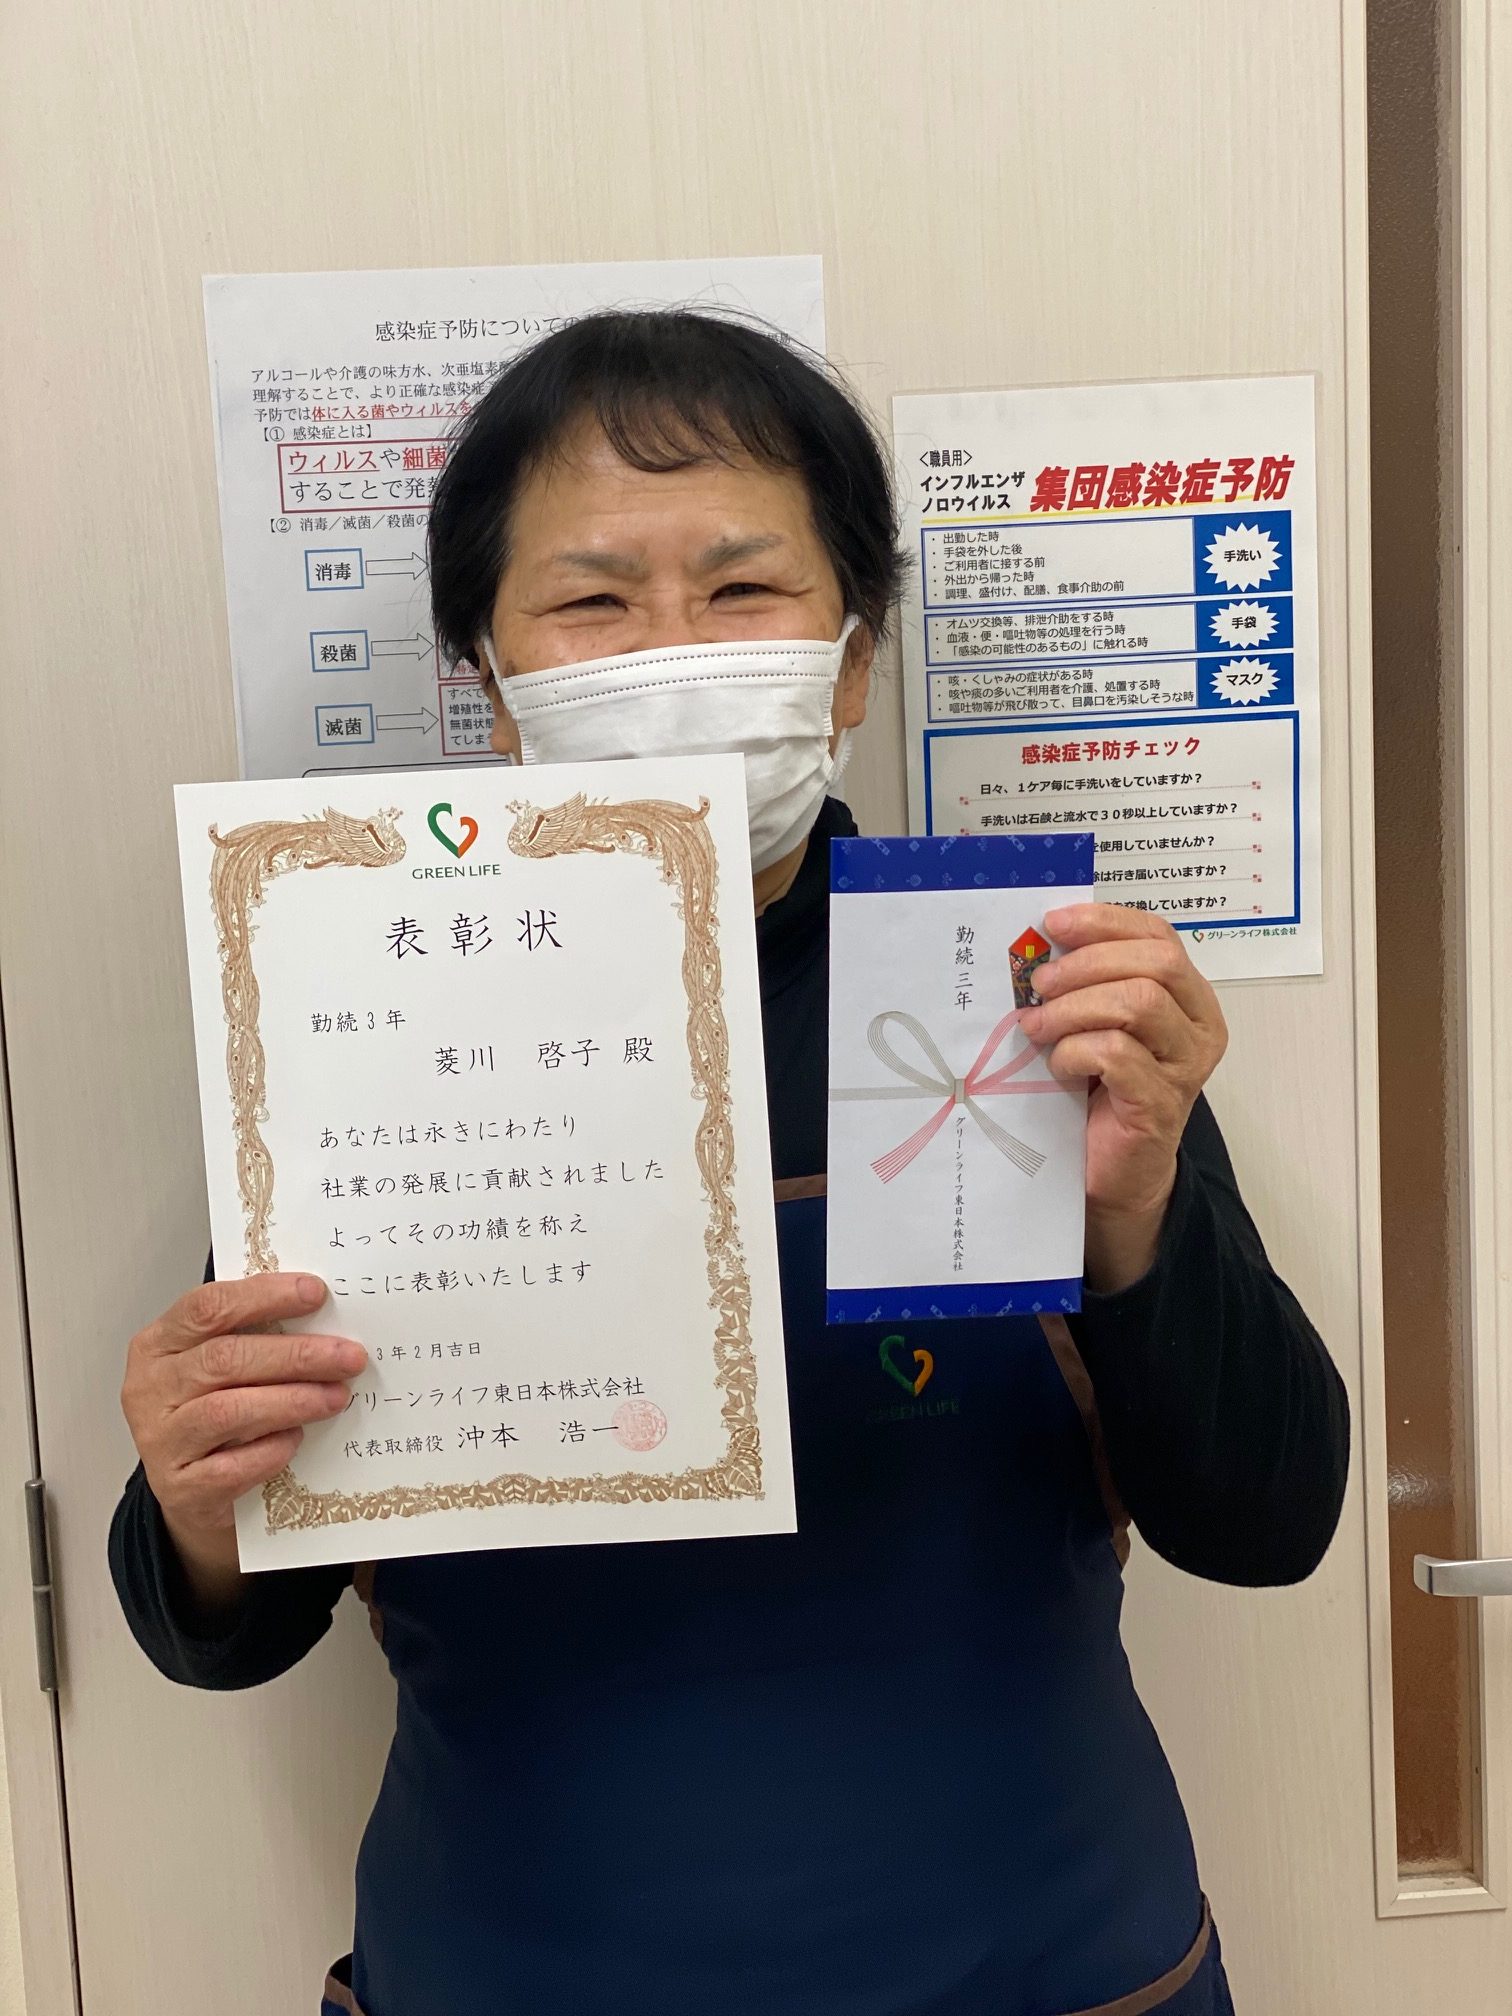 感染症予防についての
アルコールや介護の味方水、次亜塩素酸
理解することで、より正確な感染症予
予防では体に入る菌やウィルスを
【① 感染症とは】
ウィルスや細菌
することで発熱
【② 消毒／滅菌／殺菌の
消毒
殺菌
滅菌
すべて
増殖性を
無菌状態
てしま
<職員用>
インフルエンザ
ノロウイルス
集団感染症予防
・出勤した時
・手袋を外した後
・ご利用者に接する前
・外出から帰った時
・調理、盛付け、配膳、食事介助の前
手洗い
・オムツ交換等、排泄介助をする時
・血液・便・嘔吐物等の処理を行う時
・「感染の可能性のあるもの」に触れる時
手袋
・咳・くしゃみの症状がある時
・咳や痰の多いご利用者を介護、処置する時
・嘔吐物等が飛び散って、目鼻口を汚染しそうな時
マスク
感染症予防チェック
日々、１ケア毎に手洗いをしていますか？
手洗いは石鹸と流水で３０秒以上していますか？
を使用していませんか？
は行き届いていますか？
交換していますか？
グリーンライフ株式会社
GREEN LIFE
表彰状
勤続３年
菱川　啓子 殿
あなたは永きにわたり
社業の発展に貢献されました
よってその功績を称え
ここに表彰いたします
３年２月吉日
グリーンライフ東日本株式会社
代表取締役 沖本　浩一
JCB
勤続三年
グリーンライフ東日本株式会社
GREEN LIFE